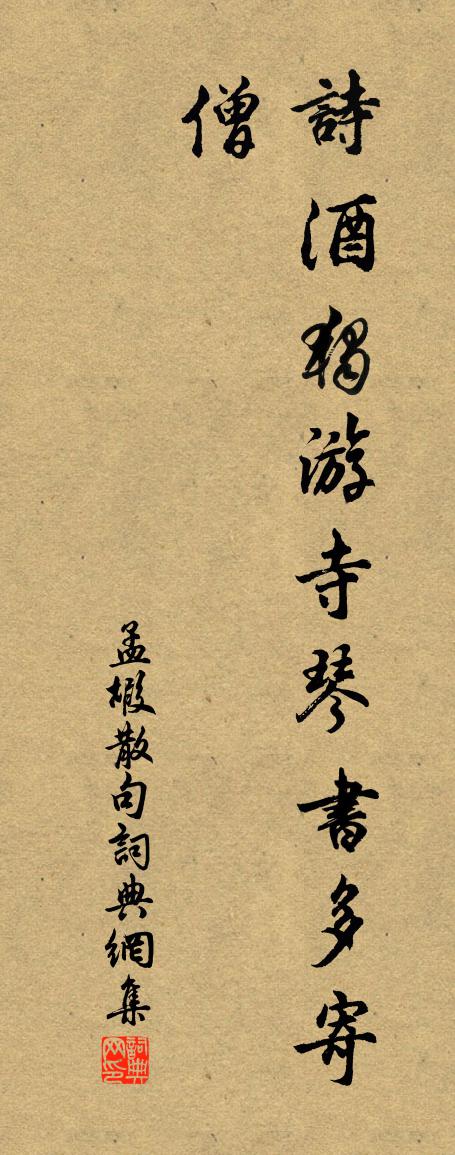 詩酒獨游寺琴書多寄
僧
孟椴散句詞典網集
詞典网印